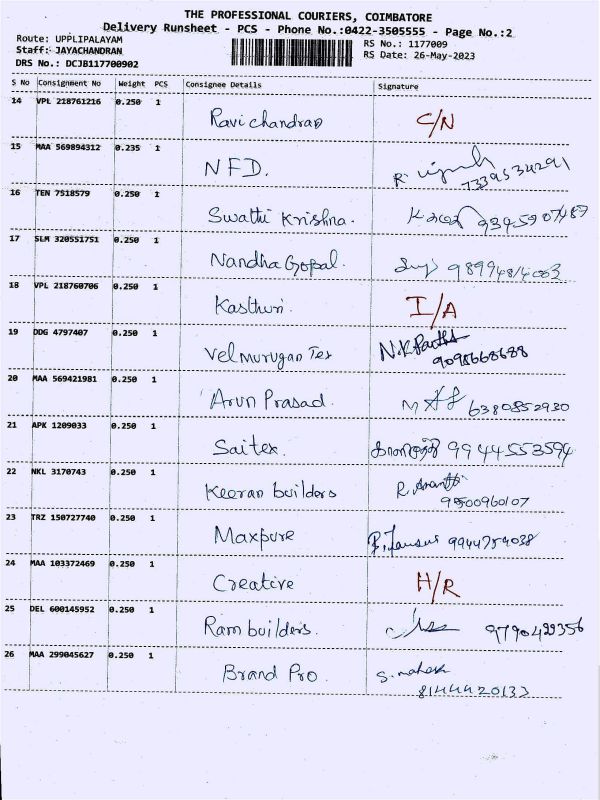 THE PROFESSIONAL COURIERS, COIMBATORE
Delivery Runsheet - PCS - Phone No.:0422-3505555 - Page No.:2
Route: UPPLIPALAYAM RS No.: 1177009
Staff: JAYACHANDRAN RS Date: 26-May-2023
DRS No.: DCJB117700902
S No Consignment No Weight PCS Consignee Details Signature
14 VPL 218761216 0.250 1 Ravichandran C/N
15 MAA 569894312 0.235 1 NFD. R.
7339534291
16 TEN 7518579 0.250 1 Swathi Krishna. 9345907487
17 SLM 320551751 0.250 1 Nandha Gopal. 9899484003
18 VPL 218760706 0.250 1 Kasthuri. I/A
19 DDG 4797407 0.250 1 Velmurugan Tex N.K Partha
9098668688
20 MAA 569421981 0.250 1 Arun Prasad. 6380852930
21 APK 1209033 0.250 1 Saitex. 9944553594
22 NKL 3170743 0.250 1 Keeran builders R. Ananthi
9500960107
23 TRZ 150727740 0.250 1 Maxpure 9944754038
24 MAA 103372469 0.250 1 Creative H/R
25 DEL 600145952 0.250 1 Ram builders. 9790499356
26 MAA 299045627 0.250 1 Brand Pro. S. mahesh
8144420133